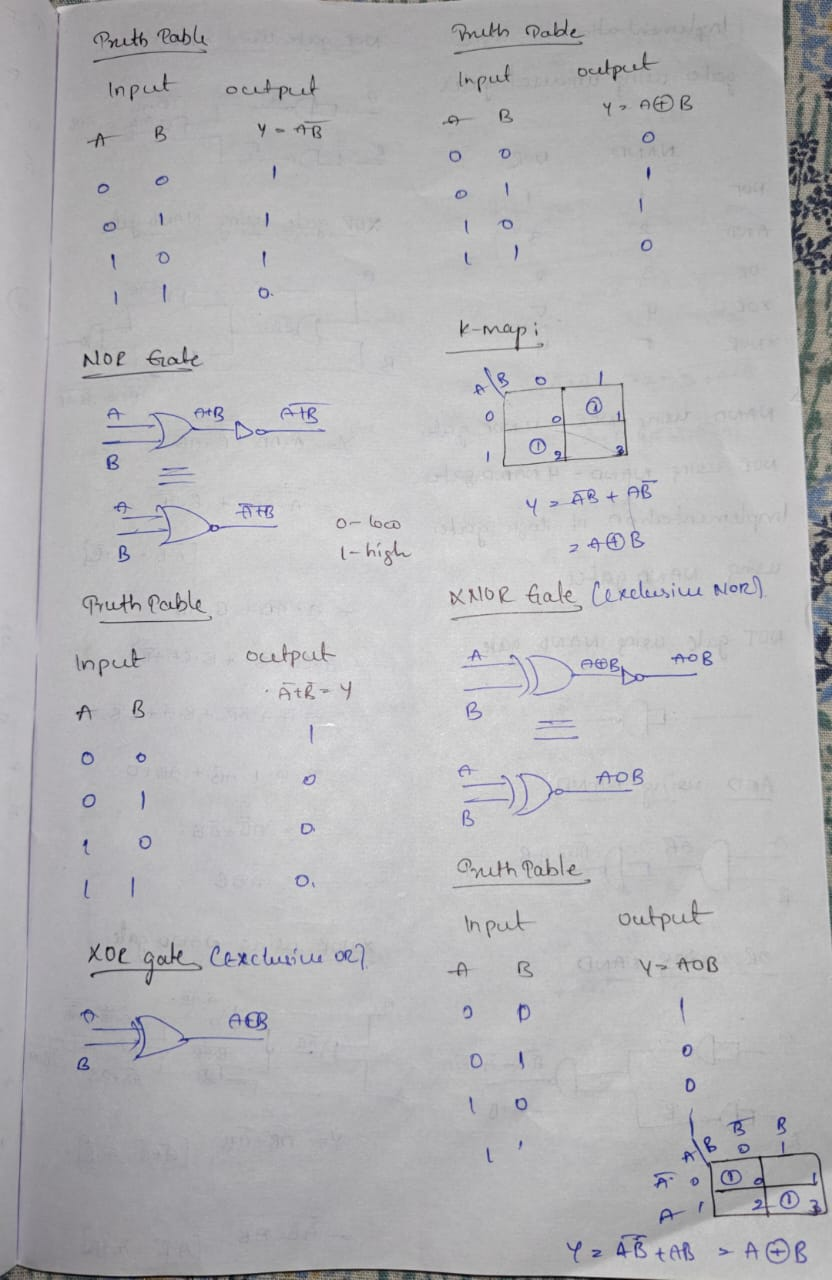 Truth Table
Input output
A B Y = A̅B̅
0 0 1
0 1 1
1 0 1
1 1 0.
NOR Gate
A A+B A̅+̅B̅
B
≡
A A̅+̅B̅
B
0 - low
1 - high
Truth Table
Input output
A̅+B̅ = Y
A B
0 0 1
0 1 0
1 0 0
1 1 0.
XOR gate (Exclusive OR)
A A⊕B
B
Truth Table
Input output
A B Y = A⊕B
0 0 0
0 1 1
1 0 1
1 1 0
K-map:
A\B 0 1
0 0 ① 1
1 ① 2 3
Y = A̅B + AB̅
= A⊕B
XNOR Gate (exclusive NOR)
A A⊕B A⊙B
B
≡
A A⊙B
B
Truth Table
Input output
A B Y = A⊙B
0 0 1
0 1 0
1 0 0
1 1 1
B̅ B
A\B 0 1
A̅ 0 ① 0 1
A 1 2 ① 3
Y = A̅B̅ + AB = A⊕B